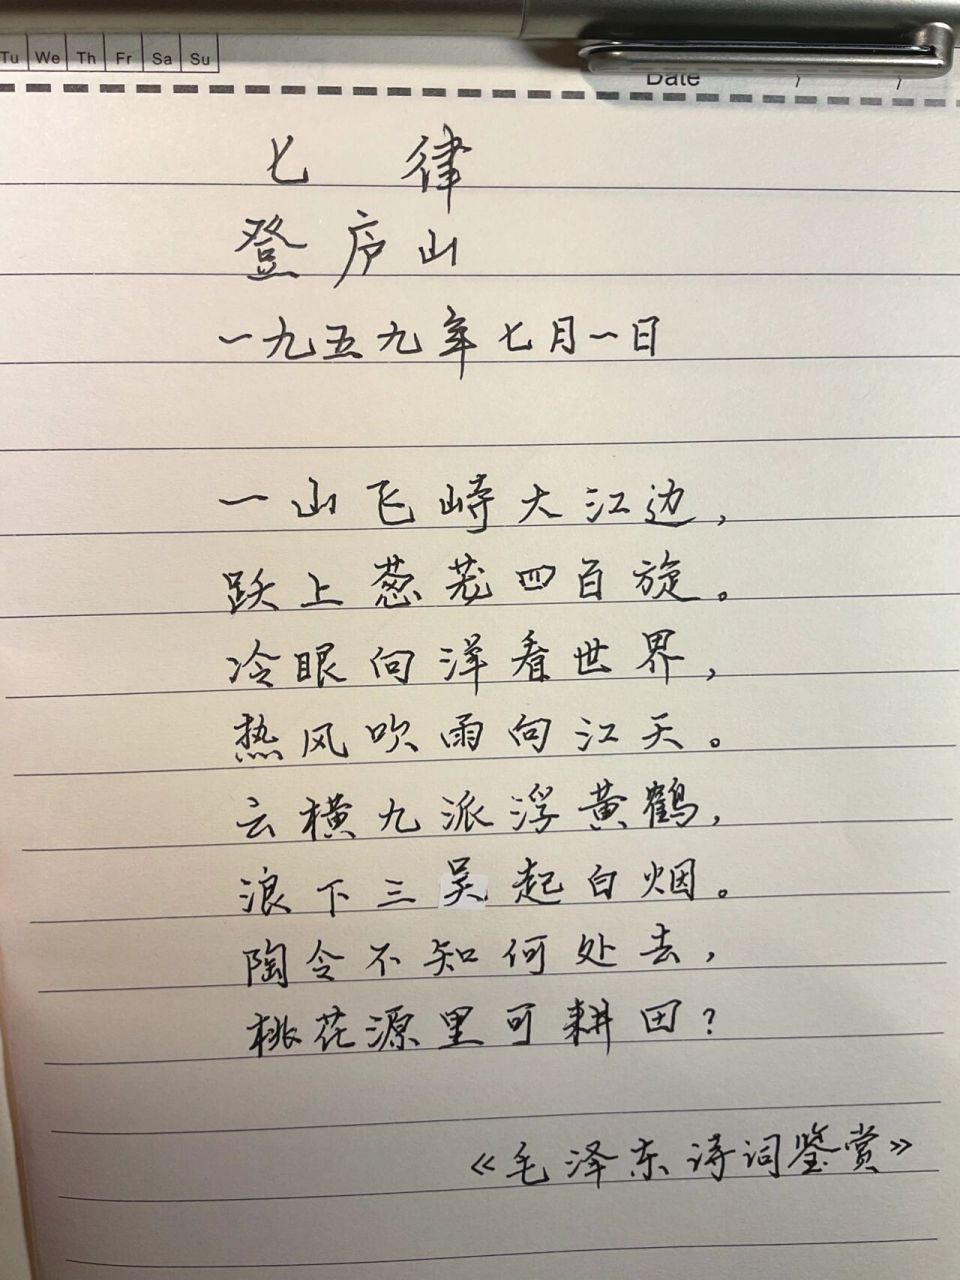 Tu We Th Fr Sa Su
Date / /
七 律
登庐山
一九五九年七月一日
一山飞峙大江边，
跃上葱茏四百旋。
冷眼向洋看世界，
热风吹雨向江天。
云横九派浮黄鹤，
浪下三吴起白烟。
陶令不知何处去，
桃花源里可耕田？
《毛泽东诗词鉴赏》